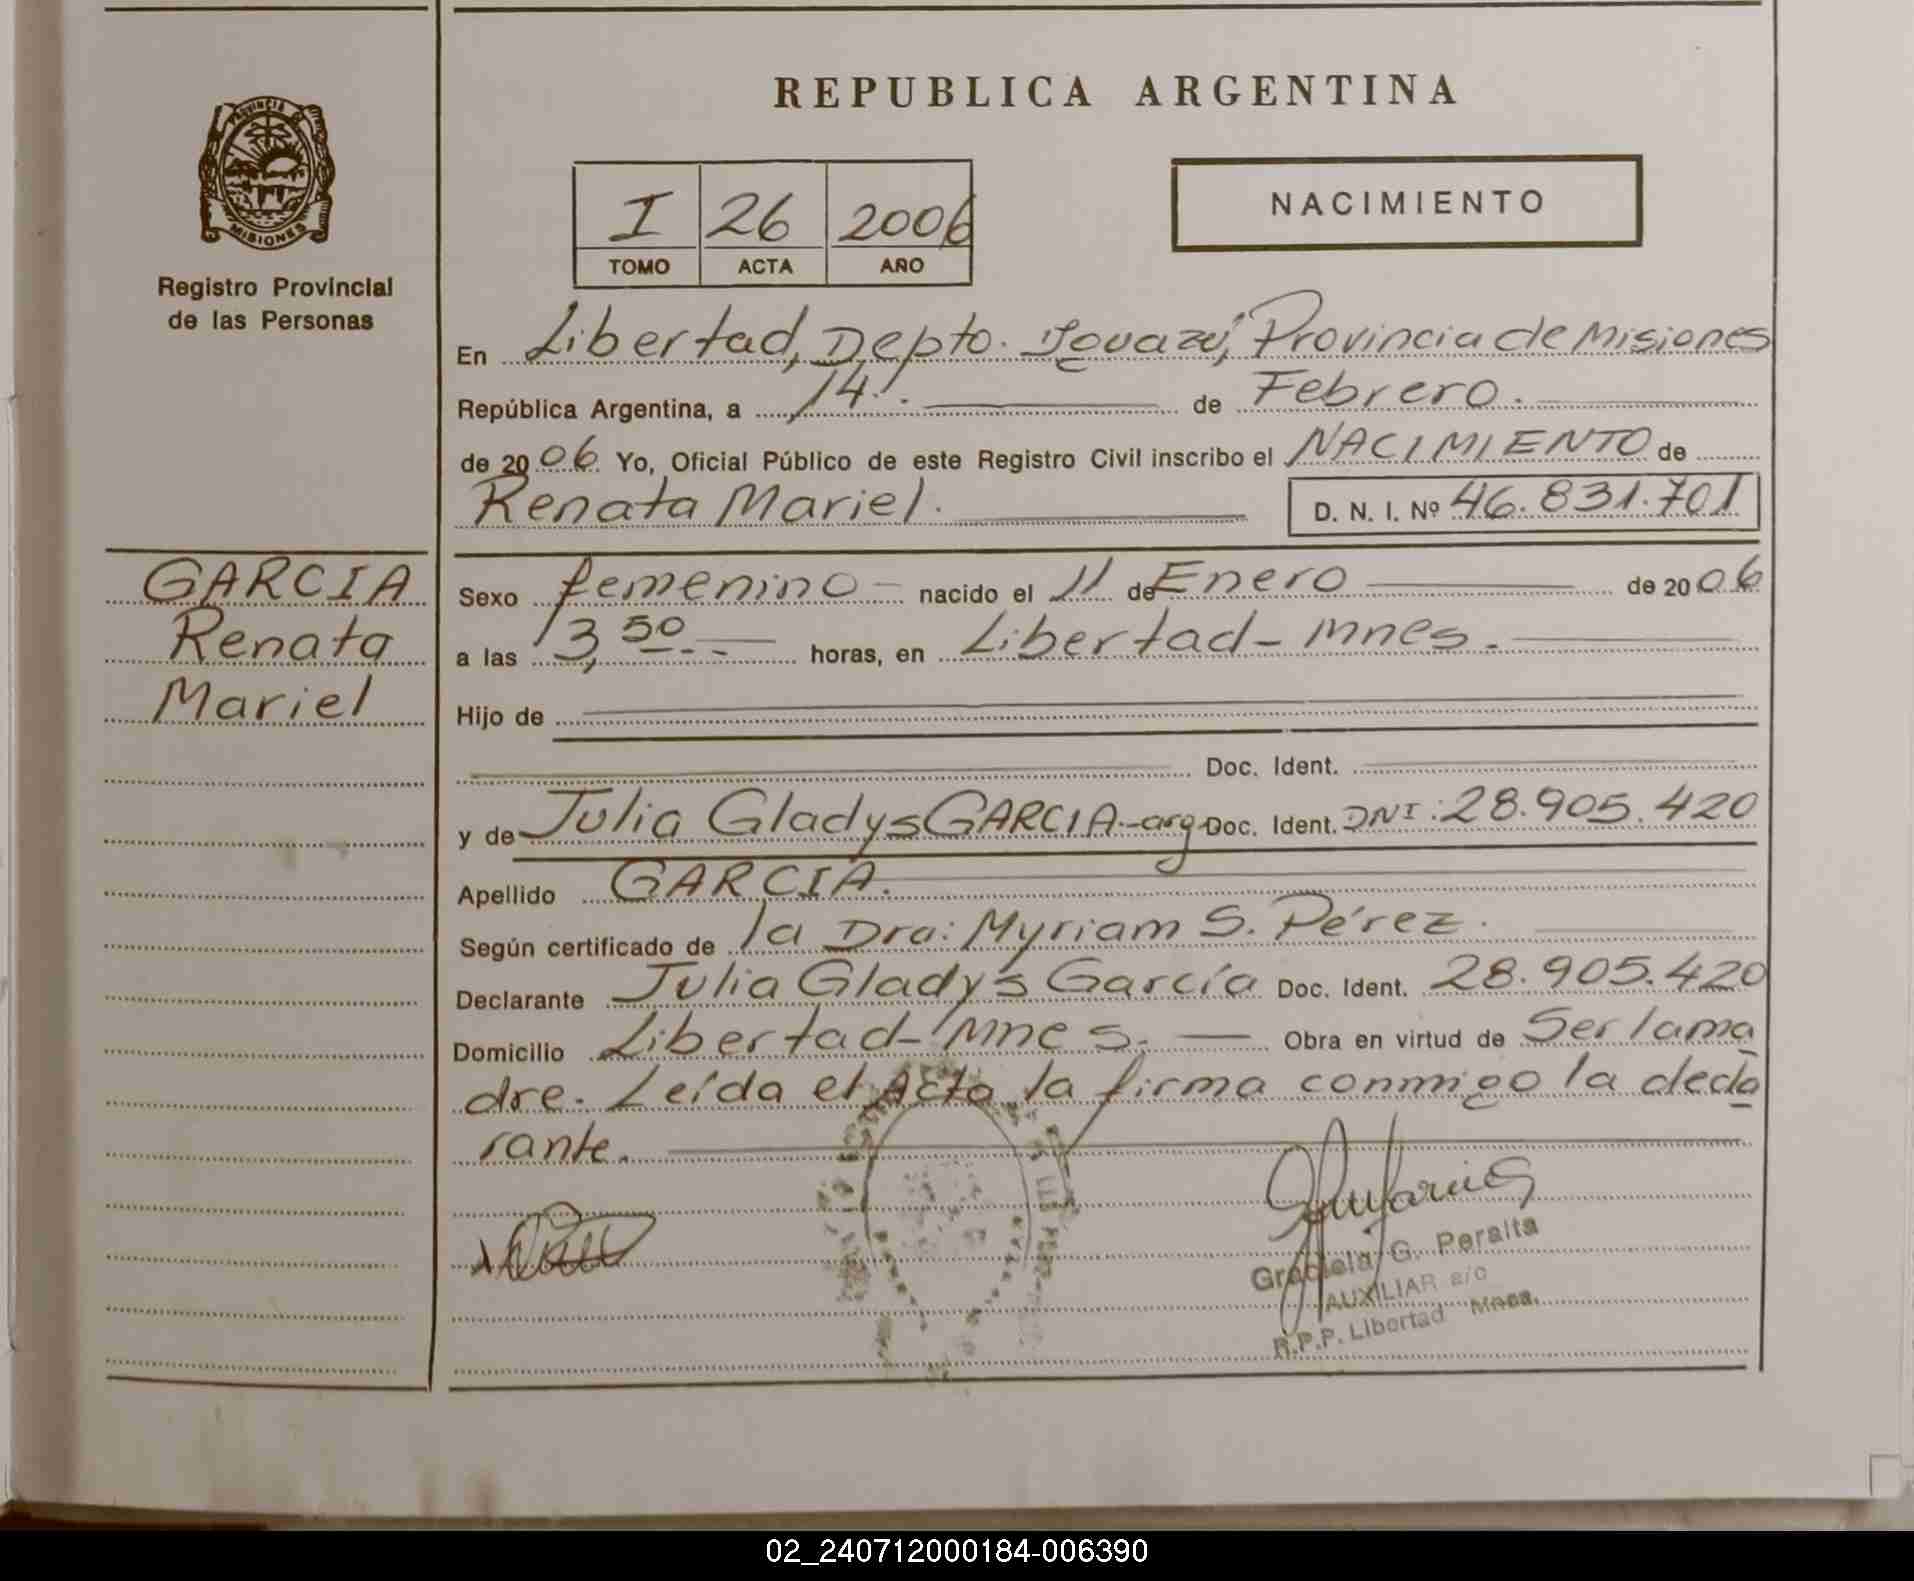 REPUBLICA ARGENTINA
PROVINCIA DE
MISIONES
Registro Provincial
de las Personas
I 26 2006
TOMO ACTA AÑO
NACIMIENTO
En Libertad, Depto. Iguazú, Provincia de Misiones
República Argentina, a 14. de Febrero.
de 2006 Yo, Oficial Público de este Registro Civil inscribo el NACIMIENTO de
Renata Mariel. D. N. I. Nº 46.831.701
GARCIA
Renata
Mariel
Sexo femenino - nacido el 11 de Enero de 2006
a las 13,50 horas, en Libertad - Mnes.
Hijo de
Doc. Ident.
y de Julia Gladys GARCIA.-arg- Doc. Ident. DNI: 28.905.420
Apellido GARCIA.
Según certificado de la Dra: Myriam S. Pérez.
Declarante Julia Gladys García Doc. Ident. 28.905.420
Domicilio Libertad - Mnes. Obra en virtud de Ser la ma
dre. Leída el Acta la firma conmigo la decla
rante.
Graciela G. Peralta
AUXILIAR a/c
R.P.P. Libertad Mnes.
02_240712000184-006390